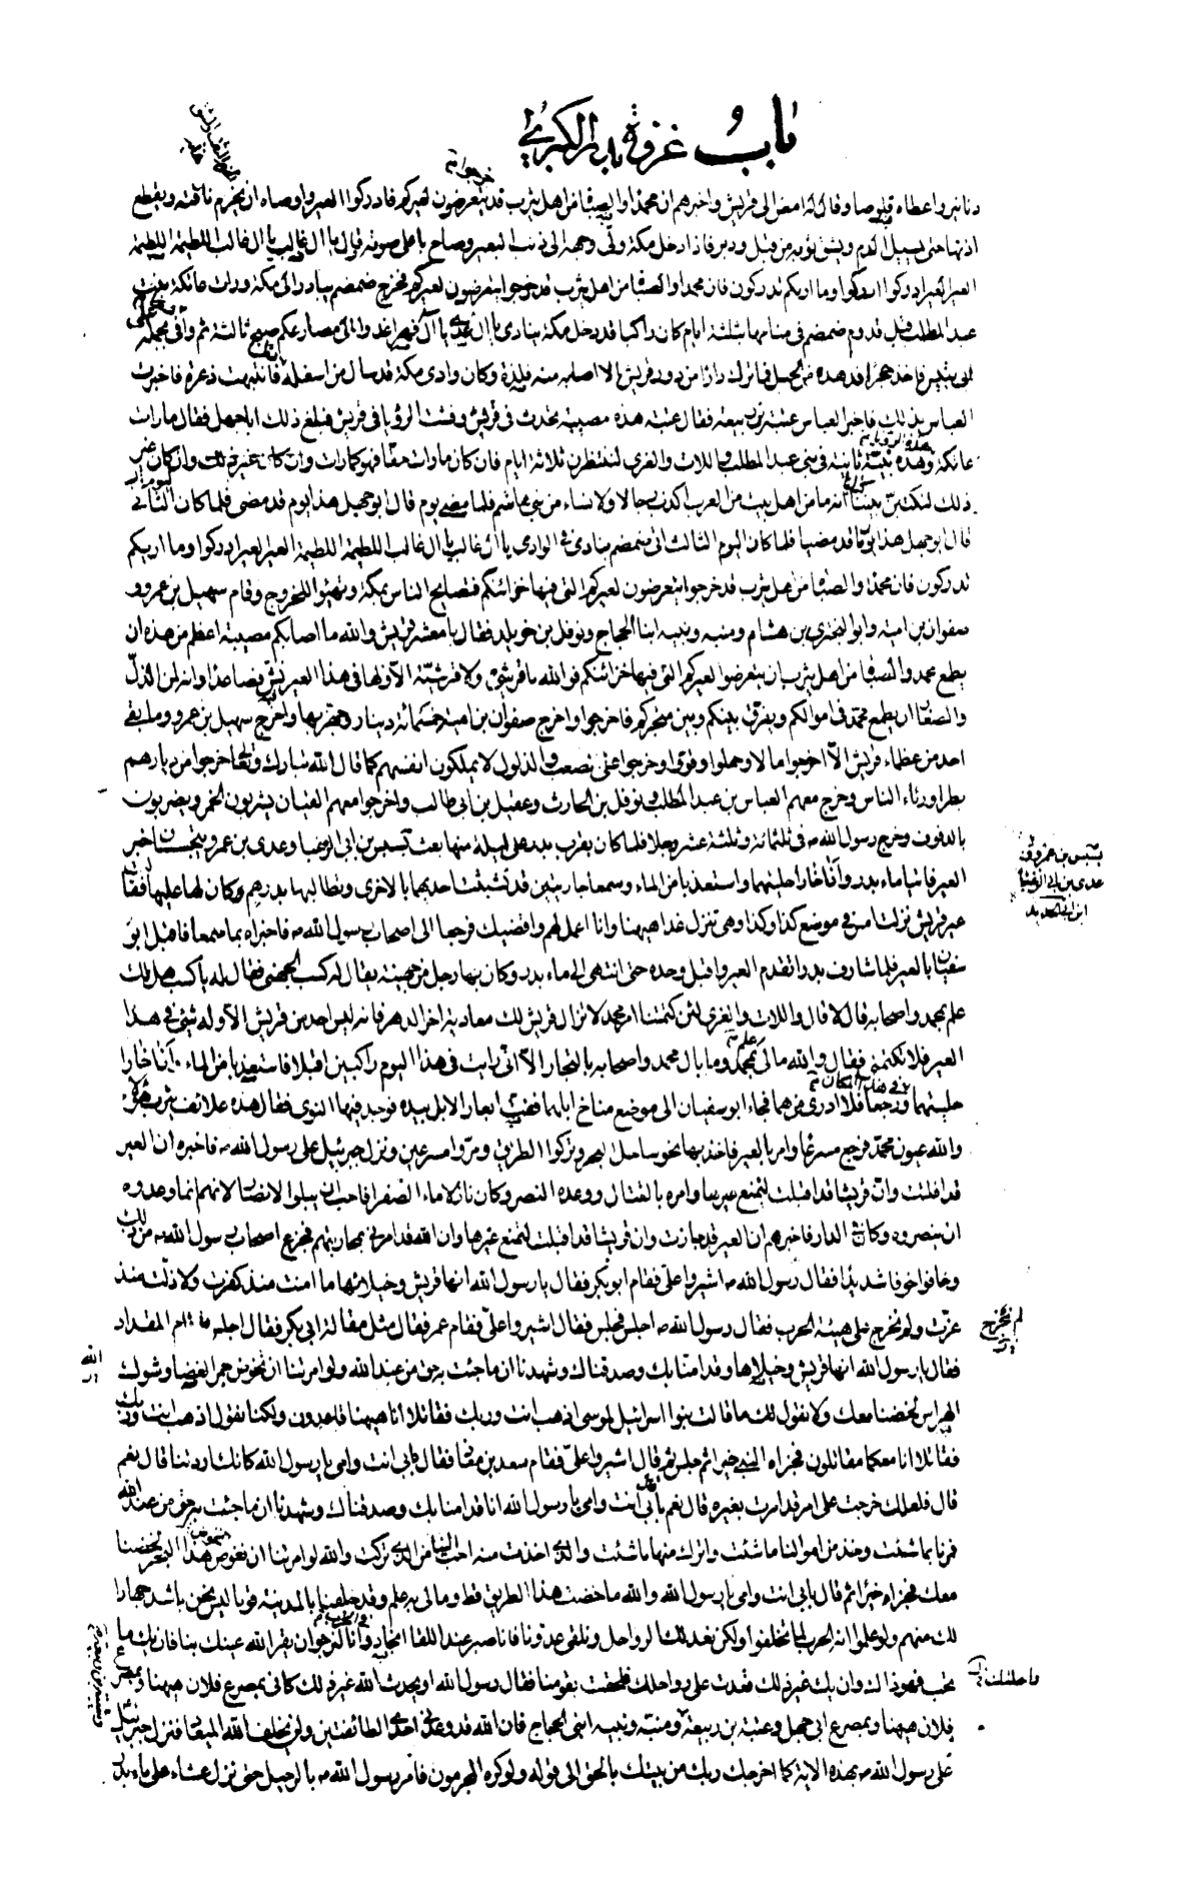 باب غزوة بدر الكبرى
دنانير واعطاه قلوصا وقال له امض الى قريش واخبرهم ان محمدا والصباة من اهل يثرب قد يتعرضون لعيركم فادركوا العير واوصاه ان يخرم ناقته ويقطع
اذنها حتى يسيل الدم ويشق ثوبه من قبل ودبر فاذا دخل مكة ولى وجهه الى ذنب البعير وصاح باعلى صوته يا ال غالب يا ال غالب اللطيمة اللطيمة
العير العير ادركوا ادركوا وما اريكم تدركون فان محمدا والصباة من اهل يثرب قد خرجوا يتعرضون لعيركم فخرج ضمضم يبادر الى مكة ورات عاتكة بنت
عبد المطلب قبل قدوم ضمضم في منامها بثلثة ايام كان راكبا قد دخل مكة ينادي يا ال يا ال فهر اغدوا الى مصارعكم صبح ثالثة ثم وافى بجمله
على فاخذ حجرا فدهده من الجبل فما ترك دارا من دور قريش الا اصابه منه فلذة وكان وادي مكة قد سال من اسفله فانتبهت ذعرة فاخبرت
العباس بذلك فاخبر العباس عتبة بن ربيعة فقال عتبة هذه مصيبة تحدث في قريش وفشت الرؤيا في قريش فبلغ ذلك اباجهل فقال ما رات
عاتكة وهذه نبية ثانية في بني عبد المطلب واللات والعزى لننتظرن ثلاثة ايام فان كان ما رات حقا فهو كما رات وان كان غير ذلك
ذلك لنكتبن بيننا انه ما من اهل بيت من العرب اكذب رجالا ولا نساء من بني هاشم فلما مضى يوم قال ابوجهل هذا يوم قد مضى فلما كان الثاني
قال ابوجهل هذا يومان قد مضيا فلما كان اليوم الثالث اتى ضمضم ينادي في الوادي يا ال غالب يا ال غالب اللطيمة اللطيمة العير العير ادركوا وما اريكم
تدركون فان محمدا والصباة من اهل يثرب قد خرجوا يتعرضون لعيركم التي فيها خزائنكم فتصايح الناس بمكة وتهيئوا للخروج وقام سهيل بن عمرو و
صفوان بن امية وابو البختري بن هشام ومنبه ونبيه ابنا الحجاج ونوفل بن خويلد فقال يا معشر قريش والله ما اصابكم مصيبة اعظم من هذه ان
يطمع محمد والصباة من اهل يثرب بان يتعرضوا لعيركم التي فيها خزائنكم فوالله ما قرشي ولا قرشية الا ولها في هذا العير نش فصاعدا وانه لمن الذل
والصغار ان يطمع محمد في اموالكم ويفرق بينكم وبين متجركم فاخرجوا واخرج صفوان بن امية خمسمائة دينار وجهز بها واخرج سهيل بن عمرو وما بقي
احد من عظماء قريش الا اخرجوا مالا وحملوا وقووا وخرجوا على الصعب والذلول لا يملكون انفسهم كما قال الله تبارك وتعالى خرجوا من ديارهم
بطرا ورئاء الناس وخرج معهم العباس بن عبد المطلب ونوفل بن الحارث وعقيل بن ابي طالب واخرجوا معهم القيان يشربون الخمر ويضربون
بالدفوف وخرج رسول الله ص في ثلثمائة وثلثة عشر رجلا فلما كان بقرب بدر على ليلة منها بعث بسبس بن ابي الزغبا وعدي بن عمرو يتجسسان خبر
العير فاتيا ماء بدر واناخا راحلتيهما واستعذبا من الماء وسمعا جاريتين قد تشبثت احديهما بالاخرى وتطالبها بدرهم وكان لها عليها فقالت
عير قريش نزلت امس في موضع كذا وكذا وهي تنزل غدا هيهنا وانا اعمل لهم واقضيك فرجعا الى اصحاب رسول الله ص فاخبراه بما سمعا فاقبل ابو
سفيان بالعير فلما شارف بدرا تقدم العير واقبل وحده حتى انتهى الى ماء بدر وكان بها رجل من جهينة يقال له كسب الجهني فقال له يا كسب هل لك
علم بمحمد واصحابه قال لا قال واللات والعزى لئن كتمتنا امر محمد لا تزال قريش لك معادية اخر الدهر فانه ليس احد من قريش الا وله شئ في هذا
العير فلا تكتمني فقال والله مالي علم بمحمد وما بال محمد واصحابه بالتجار الا اني رايت في هذا اليوم راكبين اقبلا فاستعذبا من الماء واناخا را
حلتيهما ورجعا فلا ادري من هما فجاء ابو سفيان الى موضع مناخ ابلهما ففت ابعار الابل بيده فوجد فيها النوى فقال هذه علائف يثرب هؤلاء
والله عيون محمد فرجع مسرعا وامر بالعير فاخذ بها نحو ساحل البحر وتركوا الطريق ومروا مسرعين ونزل جبرئيل على رسول الله ص فاخبره ان العير
قد افلتت وان قريشا قد اقبلت لتمنع عيرها وامره بالقتال ووعده النصر وكان نازلا ماء الصفرا فاحب ان يبلو الانصار لانهم انما وعدوه
ان ينصروه وكان في الدار فاخبرهم ان العير قد جازت وان قريشا قد اقبلت لتمنع عيرها وان الله قد امرني بمحاربتهم فجزع اصحاب رسول الله ص من ذلك
وخافوا خوفا شديدا فقال رسول الله ص اشيروا علي فقام ابوبكر فقال يا رسول الله انها قريش وخيلائها ما امنت منذ كفرت ولا ذلت منذ
عزت ولم نخرج على هيئة الحرب فقال رسول الله ص اجلس فجلس فقال اشيروا علي فقام عمر فقال مثل مقالة ابي بكر فقال اجلس ثم قام المقداد
فقال يا رسول الله انها قريش وخيلاءها وقد امنا بك وصدقناك وشهدنا ان ما جئت به حق من عند الله ولو امرتنا ان نخوض جمر الغضا وشوك
الهراس لخضنا معك ولا نقول لك ما قالت بنوا اسرائيل لموسى اذهب انت وربك فقاتلا انا هيهنا قاعدون ولكنا نقول اذهب انت وربك
فقاتلا انا معكما مقاتلون فجزاه النبي خيرا ثم جلس ثم قال اشيروا علي فقام سعد بن معاذ فقال بابي انت وامي يا رسول الله كانك اردتنا قال نعم
قال فلعلك خرجت على امر قد امرت بغيره قال نعم قال بابي انت وامي يا رسول الله انا قد امنا بك وصدقناك وشهدنا ان ما جئت به حق من عند الله
فمرنا بما شئت وخذ من اموالنا ما شئت واترك منها ما شئت والذي اخذت منه احب الينا من الذي تركت والله لو امرتنا ان نخوض هذا البحر لخضنا
معك فجزاه خيرا ثم قال بابي انت وامي يا رسول الله والله ما خضت هذا الطريق قط ومالي به علم وقد خلفنا بالمدينة قوما ليس نحن باشد جهادا
لك منهم ولو علموا انه الحرب لما تخلفوا ولكن نعد لك الرواحل ونلقى عدونا فانا صبر عند اللقا انجاد في الحرب وانا لنرجو ان يقر الله عينك بنا فان يك ما
تحب فهو ذاك وان يك غير ذلك قعدت على رواحلك فلحقت بقومنا فقال رسول الله او يحدث الله غير ذلك كاني بمصرع فلان هيهنا وبمصرع
فلان هيهنا وبمصرع ابي جهل وعتبة بن ربيعة ومنبه ونبيه ابني الحجاج فان الله قد وعدني احدى الطائفتين ولن يخلف الله الميعاد فنزل جبرئيل
على رسول الله ص بهذه الاية كما اخرجك ربك من بيتك بالحق الى قوله ولو كره المجرمون فامر رسول الله ص بالرحيل حتى نزل عشاء على ماء بدر
بسبس بن عمرو
عدي بن ابي الزغبا
ابن ابي الحديد
لم نخرج
الله